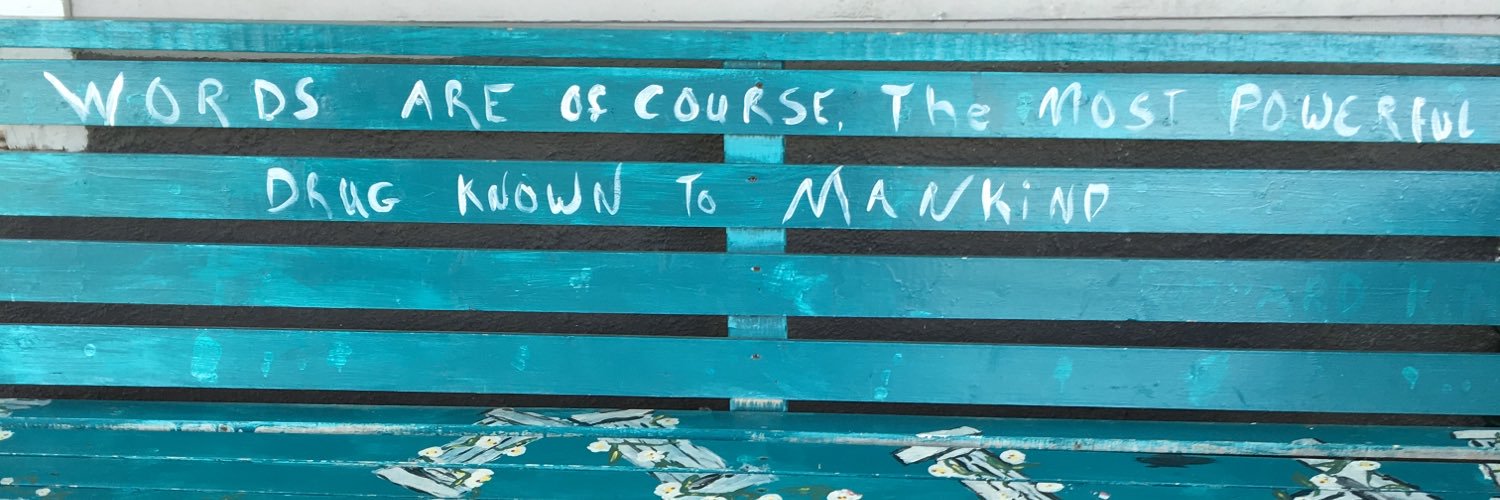 WORDS ARE OF COURSE, The MOST POWERFUL
DRUG KNOWN To MANKiND